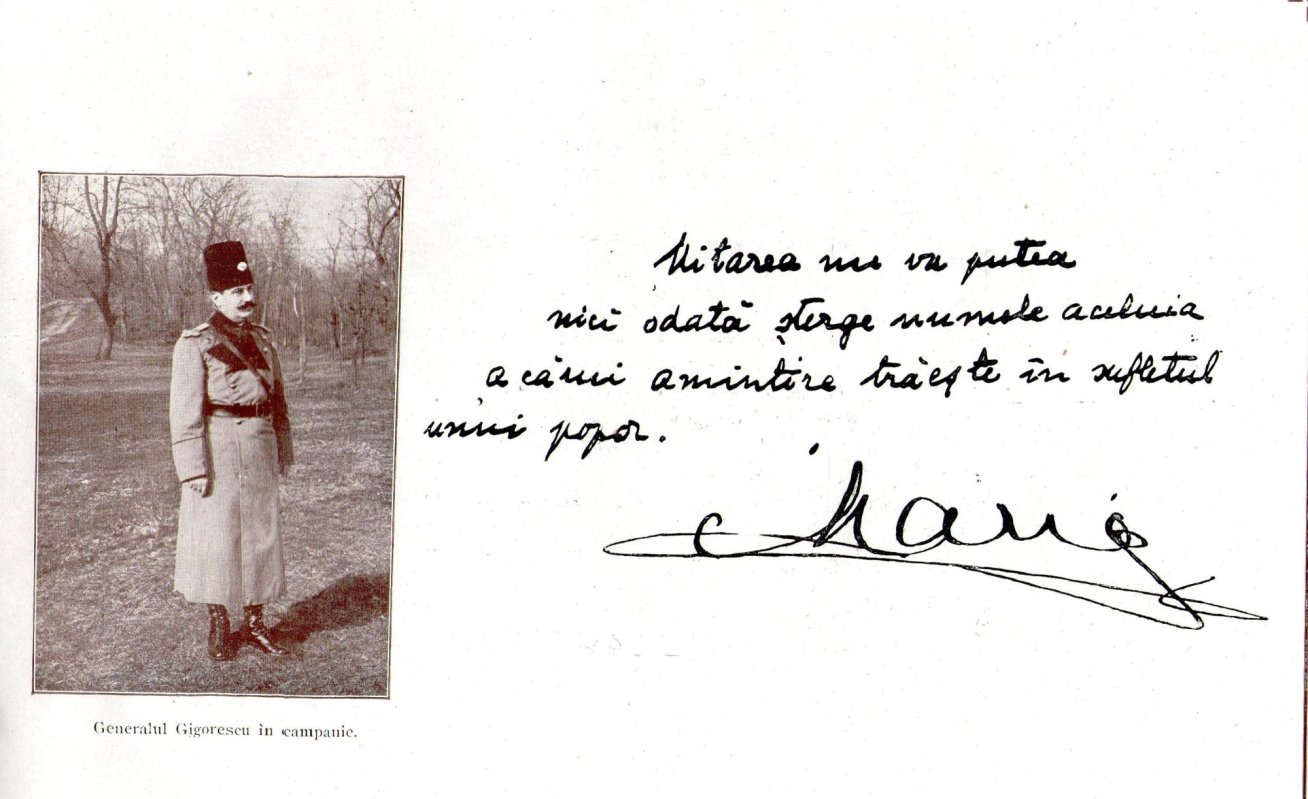 Uitarea nu va putea
nici odată șterge numele aceluia
a cărui amintire trăește în sufletul
unui popor.
Maria
Generalul Gigorescu în campanie.